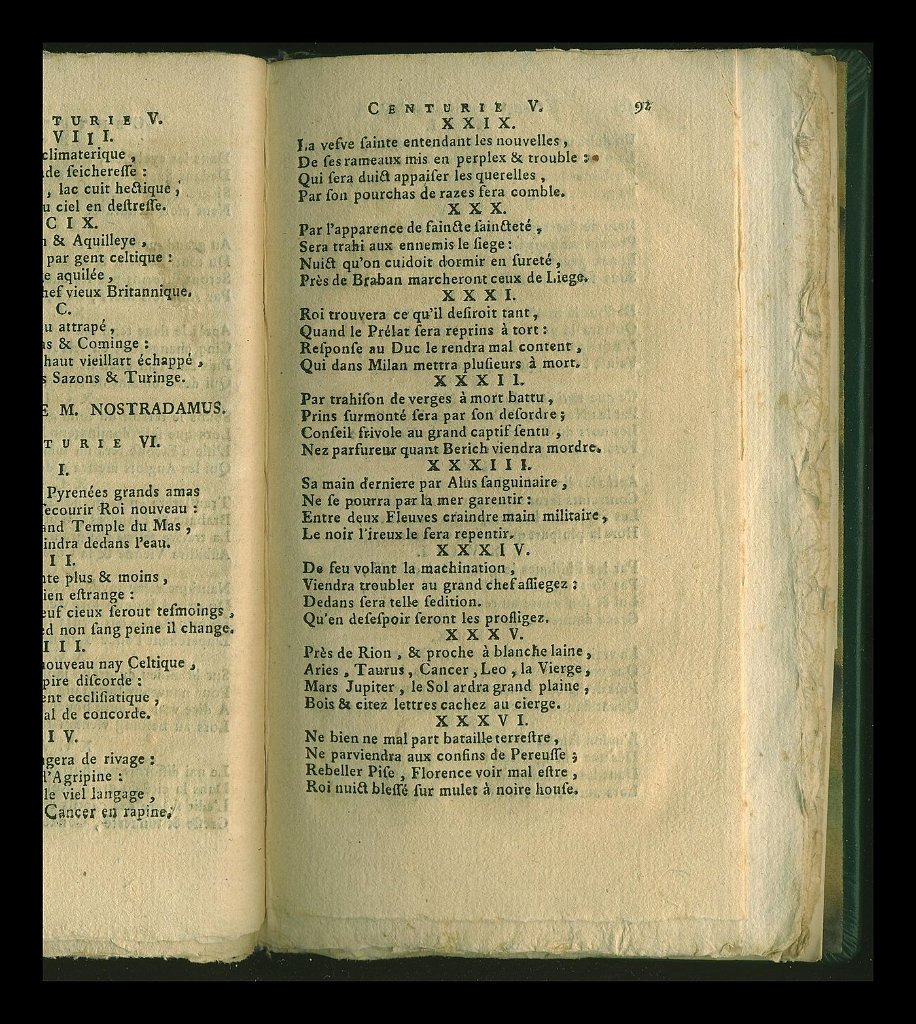 TURIE V.
VIII.
climaterique,
de ſeichereſſe :
, lac cuit hectique,
u ciel en deſtreſſe.
CIX.
& Aquilleye,
par gent celtique :
e aquilée,
hef vieux Britannique.
C.
u attrapé,
s & Cominge :
haut vieillart échappé,
s Sazons & Turinge.
E M. NOSTRADAMUS.
TURIE VI.
I.
Pyrenées grands amas
ſecourir Roi nouveau :
and Temple du Mas,
indra dedans l'eau.
II.
te plus & moins,
ien eſtrange :
euf cieux ſerout teſmoings,
ed non ſang peine il change.
III.
ouveau nay Celtique,
pire diſcorde :
ent eccliſiatique,
al de concorde.
IV.
gera de rivage :
l'Agripine :
le viel langage,
Cancer en rapine.
CENTURIE V. 92
XXIX.
La veſve ſainte entendant les nouvelles,
De ſes rameaux mis en perplex & trouble :
Qui ſera duict appaiſer les querelles,
Par ſon pourchas de razes ſera comble.
XXX.
Par l'apparence de ſaincte ſaincteté,
Sera trahi aux ennemis le ſiege :
Nuict qu'on cuidoit dormir en ſureté,
Près de Braban marcheront ceux de Liege.
XXXI.
Roi trouvera ce qu'il deſiroit tant,
Quand le Prélat ſera reprins à tort :
Reſponſe au Duc le rendra mal content,
Qui dans Milan mettra pluſieurs à mort.
XXXII.
Par trahiſon de verges à mort battu,
Prins ſurmonté ſera par ſon deſordre ;
Conſeil frivole au grand captif ſentu,
Nez parfureur quant Berich viendra mordre.
XXXIII.
Sa main derniere par Alus ſanguinaire,
Ne ſe pourra par la mer garentir :
Entre deux Fleuves craindre main militaire,
Le noir l'ireux le ſera repentir.
XXXIV.
De feu volant la machination,
Viendra troubler au grand chef aſſiegez :
Dedans ſera telle ſedition.
Qu'en deſeſpoir ſeront les profligez.
XXXV.
Près de Rion, & proche à blanche laine,
Aries, Taurus, Cancer, Leo, la Vierge,
Mars Jupiter, le Sol ardra grand plaine,
Bois & citez lettres cachez au cierge.
XXXVI.
Ne bien ne mal part bataille terreſtre,
Ne parviendra aux confins de Pereuſſe ;
Rebeller Piſe, Florence voir mal eſtre,
Roi nuict bleſſé ſur mulet à noire houſe.